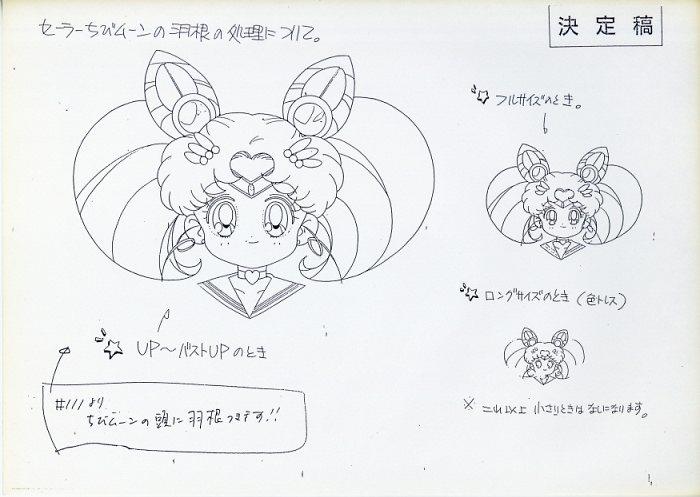 セーラーちびムーンの羽根の処理について。
決定稿
フルサイズのとき。
ロングサイズのとき(色トレス)
UP〜バストUPのとき
#111より
ちびムーンの頭に羽根つきます!!
※ これ以上小さいときはなしになります。